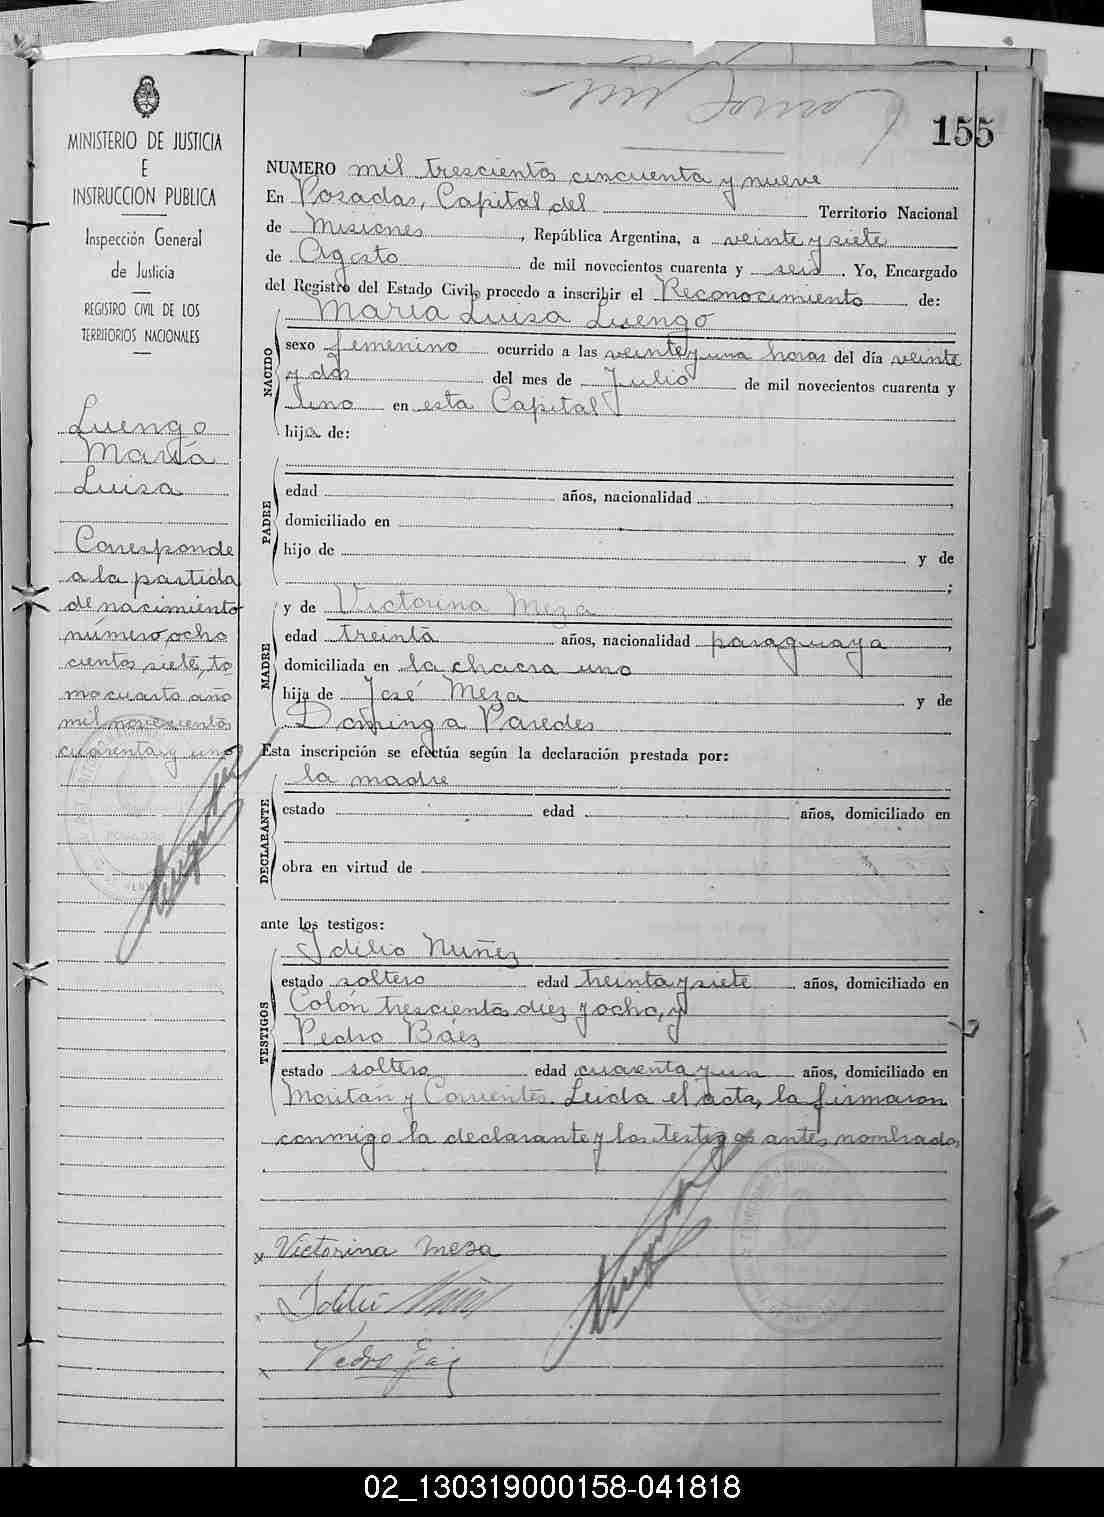 155
MINISTERIO DE JUSTICIA
E
INSTRUCCION PUBLICA
Inspección General
de Justicia
REGISTRO CIVIL DE LOS
TERRITORIOS NACIONALES
Luengo
María
Luisa
Corresponde
a la partida
de nacimiento
número, ocho
cientos, siete, to
mo cuarto año
mil novecientos
cuarenta y uno
NUMERO mil trescientos cincuenta y nueve
En Posadas, Capital del Territorio Nacional
de Misiones, República Argentina, a veinte y siete
de Agosto de mil novecientos cuarenta y seis. Yo, Encargado
del Registro del Estado Civil, procedo a inscribir el Reconocimiento de:
NACIDO
María Luisa Luengo
sexo femenino ocurrido a las veinte y una horas del día veinte
y dos del mes de Julio de mil novecientos cuarenta y
uno en esta Capital
hija de:
PADRE
edad años, nacionalidad ,
domiciliado en
hijo de y de
;
MADRE
y de Victorina Meza
edad treinta años, nacionalidad paraguaya,
domiciliada en la chacra uno
hija de José Meza y de
Dominga Paredes
Esta inscripción se efectúa según la declaración prestada por:
DECLARANTE
la madre
estado edad años, domiciliado en
obra en virtud de
ante los testigos:
TESTIGOS
Idilio Nuñez
estado soltero edad treinta y siete años, domiciliado en
Colón trescientos diez y ocho, y
Pedro Báez
estado soltero edad cuarenta y un años, domiciliado en
y Corrientes. Leida el acta, la firmaron
conmigo la declarante y los testigos antes nombrados,
Victorina mesa
Idilio Nuñez
Pedro
02_130319000158-041818